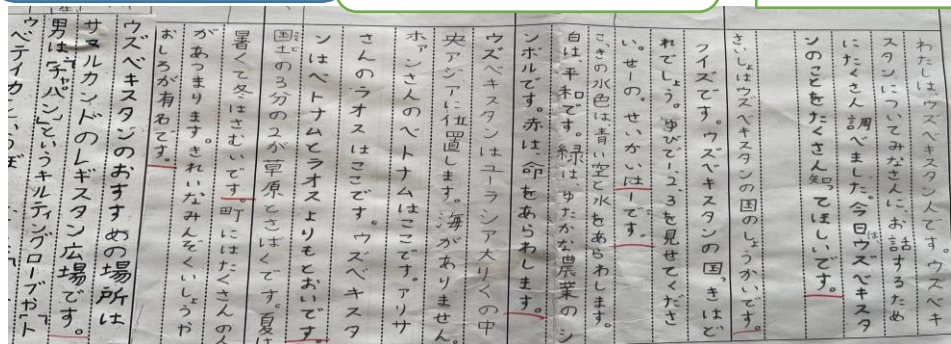 わたしはウズベキスタン人です。ウズベキ
スタンについてみなさんに、お話するため
にたくさん調べました。今日はウズベキスタ
ンのことをたくさん知ってほしいです。
さいしょはウズベキスタンの国のしょうかいです。
クイズです。ウズベキスタンの国っきはど
れでしょう。ゆびで1、2、3を見せてくださ
い。せーの。せいかいは1です。
こっきの水色は青い空と水をあらわします。
白は、平和です。緑は、ゆたかな農業のシ
ンボルです。赤は命をあらわします。
ウズベキスタンはユーラシア大りくの中
央アジアに位置します。海がありません。
ホアンさんのベトナムはここです。アリサ
さんのラオスはここです。ウズベキスタ
ンはベトナムとラオスよりもとおいです。
国土の3分の2が草原とさばくです。夏は
暑くて冬はさむいです。町にはたくさんの人
があつまります。きれいなみんぞくいしょうか
おしろが有名です。
ウズベキスタンのおすすめの場所は
サマルカンドのレギスタン広場です。
男は「チャパン」というキルティングローブが「ト